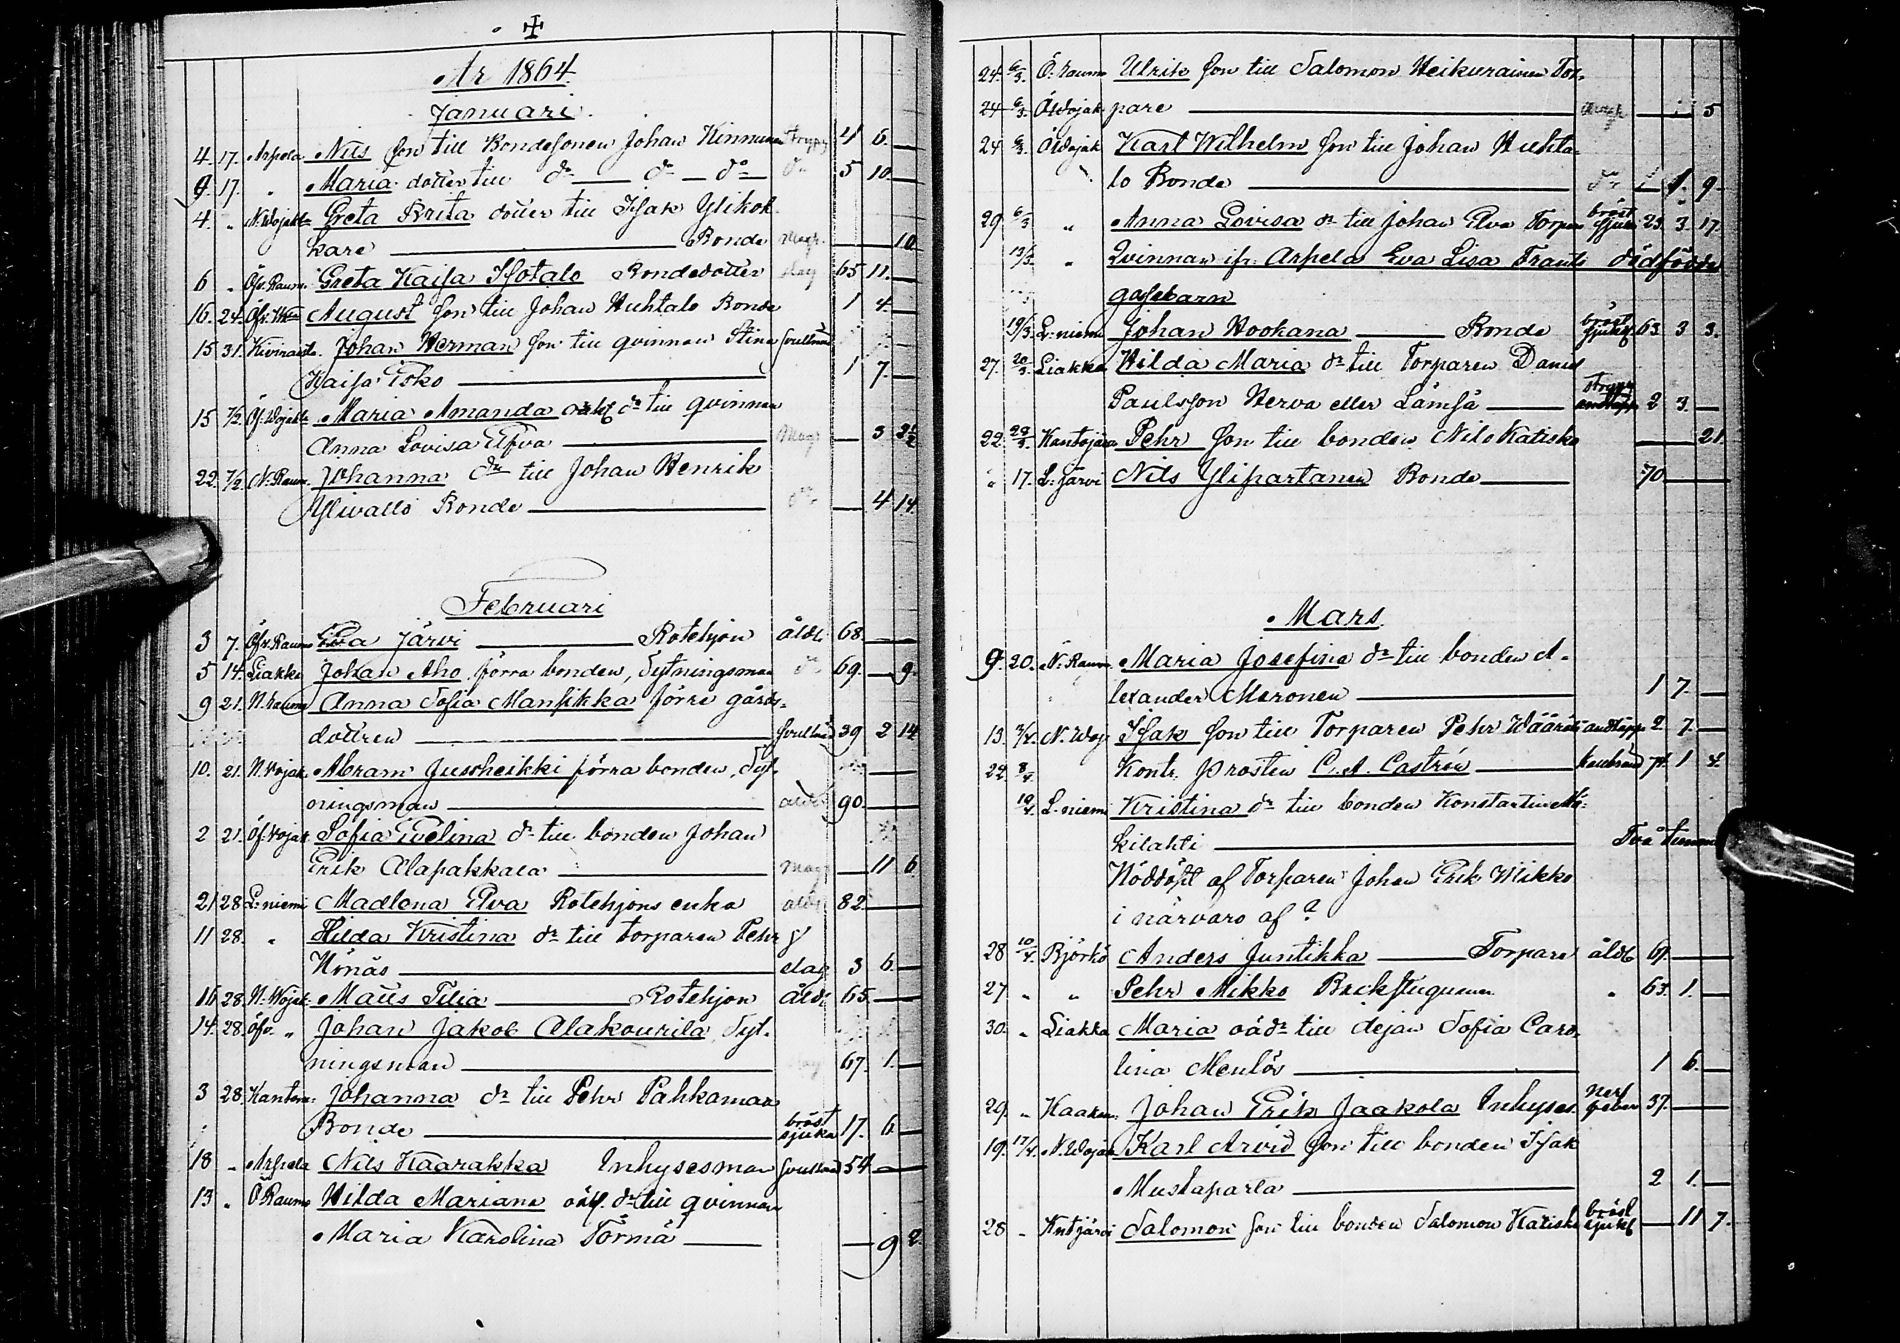 Ar 1864.
Januari.
4. 17. Arpela Nils son till Bondesonen Johan Kinnunen strypsj 4 6. —
9. 17. " Maria dotter till do — do — do — do 5 10. —
4. " N. Wojak Greta Brita dotter till Isak Ylikok
kare — Bonde Mags. — — 10
6 " Öfv. Raum. Greta Kajsa Isotalo Bondedotter slag 65 11. —
16. 24. Öfv. August son till Johan Huhtalo Bonde 1 4. —
15 31. Kiviranta. Johan Herman son till qvinnan Stina svullnad
Kajsa Esko — 1 7. —
15 7/2. Öf. Wojak Maria Amanda oäkt dr till qvinnan
Anna Lovisa Elfva — Mags — 3
22. 7/2. N. Raum. Johanna dr till Johan Henrik
Ylivallo Bonde — do — 4 14
Februari
3 7. Öfv. Raumo Eva Järvi — Rotehjon ålds. 68. — —
5 14. Liakka Johan Aho förra bonden, Sytningsman do 69. — 9.
9 21. N. Raumo Anna Sofia Mansikka förre gårds-
dottren — svullnad 39 2 14
10. 21. N. Vojak. Abram Jussheikki förra bonden, Syt-
ningsman — ålds 90. — —
2 21. Öf. Vojak Sofia Evelina dr till bonden Johan
Erik Alapakkala — Mags — 11 6
21 28 L:niemi Madlena Elva Rotehjons enka ålds 82. — —
11 28. " Hilda Kristina dr till torparen Pehr
Hönäs — slag 3 6. —
16 28. N. Wojak. Matts Tilia — Rotehjon ålds 65. — —
14. 28. Öfv. " Johan Jakob Alakourila Syt-
ningsman — slag 67. 1. —
3 28. Kantom: Johanna dr till Pehr Pahkamaa
Bonde — bröst sjuka 17. 6 —
18 " Arpela Nils Kaarakka Inhysesman svullnad 54 — —
13 " Ö Raumo Hilda Mariana oäkt. dr till qvinnan
Maria Karolina Törmä — — 9 2.
24. 6/3. Ö. Raumo Ulrik son till Salomon Heikurainen Tor-
24 6/3. Ölwojak pare — Mags — — 5
24 6/3. Ölwojak Karl Wilhelm son till Johan Huhta-
lo Bonde — do — 1. 9.
29 6/3 " Anna Lovisa dr till Johan Elva Torpare bröst sjuka 23. 3 17.
13/3. " Qvinnan ifr. Arpela Eva Lisa Frants dödfödde
gossebarn
19/3. L:niemi Johan Hookana — Bonde bröst sjuka 63. 3 3.
27. 20/3. Liakka Hilda Maria dr till Torparen Daniel
Paulsson Herva eller Lämsä — stryps andtäpp 2 3. —
22. 28/3. Kantojarvi Pehr son till bonden Nils Katisko — — 21.
" 17. L. Järvi Nils Ylipartanen Bonde — 70 — —
Mars.
9. 20. N. Raum. Maria Josefina dr till bonden A-
lexander Meronen — 1 7. —
13. 3/4. N. Woj Isak son till Torparen Pehr Wäärä andtäpp 2. 7. —
22 8/4. Kontr. Prosten C. A. Castrén — kallbrand 74. 1 4.
10/4. L. niemi Kristina dr till bonden Konstantin Mä-
kilahti — Två timmar
Nöddöpt af Torparen Johan Erik Mikko
i närvaro af ?
28 10/4. Björkö Anders Juntikka — Torpare åldr 69. — —
27 " " Pehr Mikko Backstuguman " 63. 1. —
30. " Liakka Maria oä dr till dejan Sofia Caro-
lina Menlös — 1 6. —
29. " Kaakam. Johan Erik Jaakola Inhyses nerf feber 37. — —
19. 17/4. N. Wojak Karl Arvid son till bonden Isak
Mustaparta — 2 1. —
28 " Kntjärvi Salomon son till bonden Salomon Katisko bröst sjukd — 11 7.